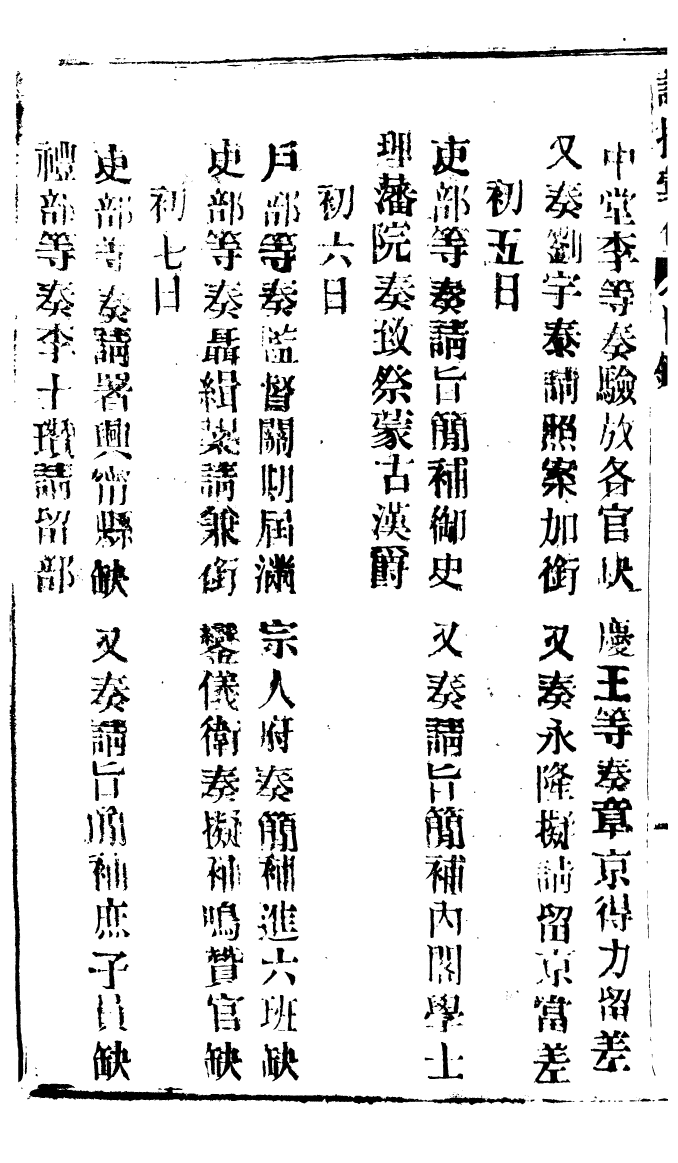 中堂李等奏驗放各官缺　慶王等奏章京得力留差
又奏劉宇泰請照案加銜　又奏永隆擬請留京當差
初五日
吏部等奏請旨簡補御史　又奏請旨簡補內閣學士
理藩院奏致祭蒙古漢爵
初六日
戶部等奏監督關期屆滿　宗人府奏簡補進六班缺
吏部等奏聶緝椝請兼銜　鑾儀衛奏擬補鳴贊官缺
初七日
吏部等奏請署興甯縣缺　又奏請旨簡補庶子員缺
禮部等奏李士瓚請留部